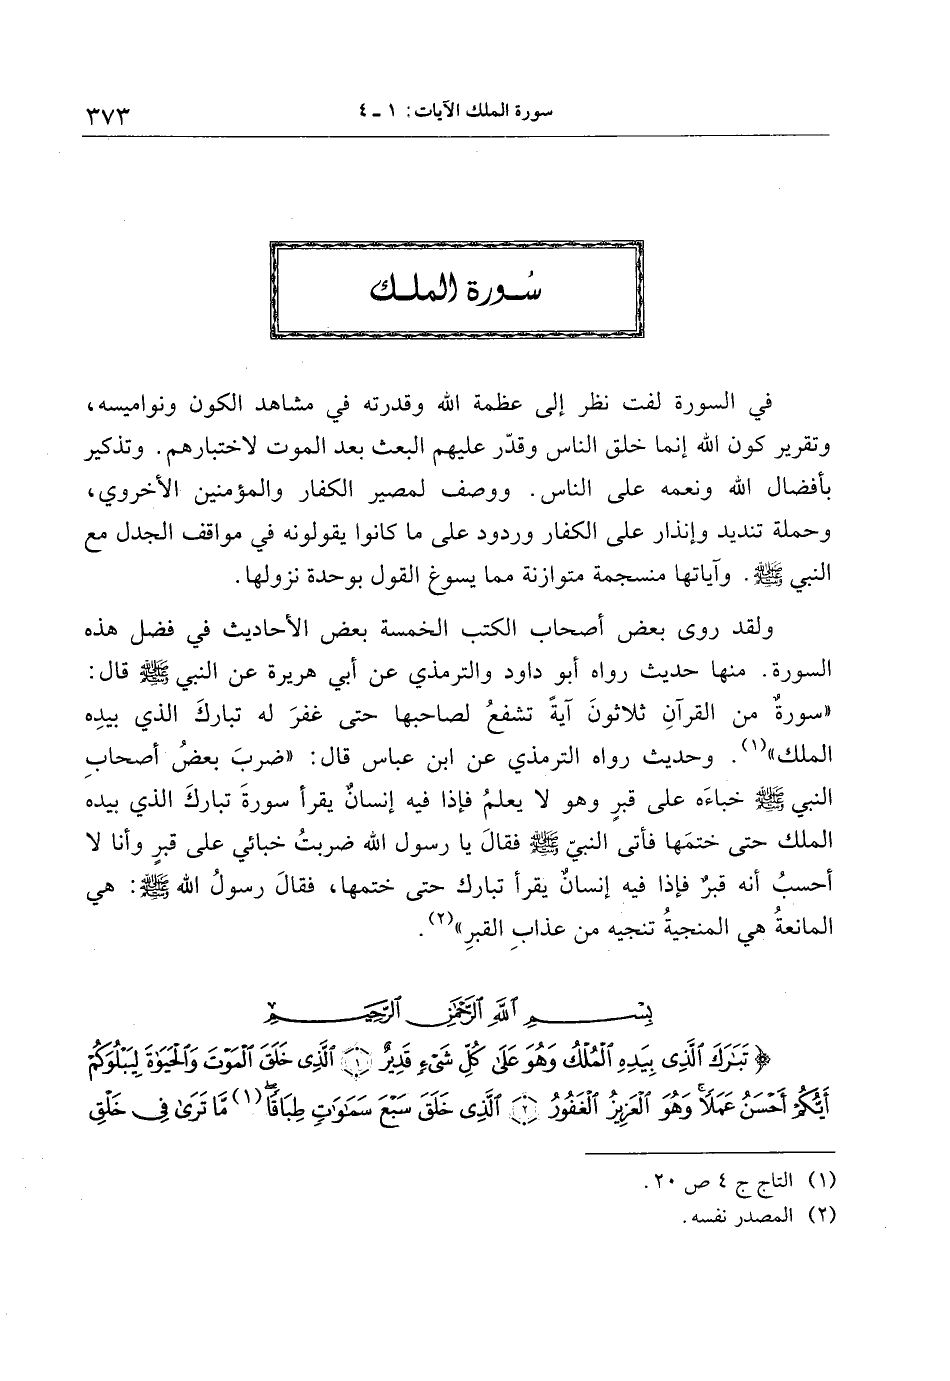 سورة الملك الآيات: ١ ـ ٤
٣٧٣
سُورة الملك
في السورة لفت نظر إلى عظمة الله وقدرته في مشاهد الكون ونواميسه،
وتقرير كون الله إنما خلق الناس وقدّر عليهم البعث بعد الموت لاختبارهم. وتذكير
بأفضال الله ونعمه على الناس. ووصف لمصير الكفار والمؤمنين الأخروي،
وحملة تنديد وإنذار على الكفار وردود على ما كانوا يقولونه في مواقف الجدل مع
النبي ﷺ. وآياتها منسجمة متوازنة مما يسوغ القول بوحدة نزولها.
ولقد روى بعض أصحاب الكتب الخمسة بعض الأحاديث في فضل هذه
السورة. منها حديث رواه أبو داود والترمذي عن أبي هريرة عن النبي ﷺ قال:
«سورةٌ من القرآنِ ثلاثونَ آيةً تشفعُ لصاحبها حتى غفرَ له تباركَ الذي بيدِه
الملك»(١). وحديث رواه الترمذي عن ابن عباس قال: «ضربَ بعضُ أصحابِ
النبي ﷺ خباءَه على قبرٍ وهو لا يعلمُ فإذا فيه إنسانٌ يقرأ سورةَ تباركَ الذي بيده
الملك حتى ختمَها فأتى النبيّ ﷺ فقالَ يا رسول الله ضربتُ خبائي على قبرٍ وأنا لا
أحسبُ أنه قبرٌ فإذا فيه إنسانٌ يقرأ تبارك حتى ختمها، فقالَ رسولُ الله ﷺ: هي
المانعةُ هي المنجيةُ تنجيه من عذابِ القبرِ»(٢).
بِسْمِ ٱللَّهِ ٱلرَّحْمَٰنِ ٱلرَّحِيمِ
﴿تَبَٰرَكَ ٱلَّذِى بِيَدِهِ ٱلْمُلْكُ وَهُوَ عَلَىٰ كُلِّ شَىْءٍ قَدِيرٌ ١ ٱلَّذِى خَلَقَ ٱلْمَوْتَ وَٱلْحَيَوٰةَ لِيَبْلُوَكُمْ
أَيُّكُمْ أَحْسَنُ عَمَلًا ۚ وَهُوَ ٱلْعَزِيزُ ٱلْغَفُورُ ٢ ٱلَّذِى خَلَقَ سَبْعَ سَمَٰوَٰتٍ طِبَاقًا ۖ (١) مَّا تَرَىٰ فِى خَلْقِ
(١) التاج ج ٤ ص ٢٠.
(٢) المصدر نفسه.